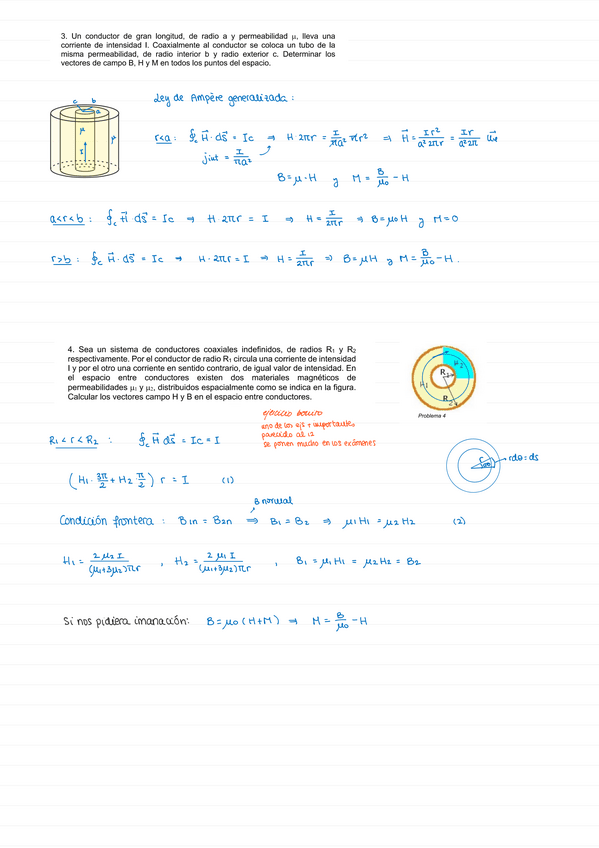 3. Un conductor de gran longitud, de radio a y permeabilidad μ, lleva una
corriente de intensidad I. Coaxialmente al conductor se coloca un tubo de la
misma permeabilidad, de radio interior b y radio exterior c. Determinar los
vectores de campo B, H y M en todos los puntos del espacio.
c b
a
μ
μ
I
Ley de Ampère generalizada:
r<a: ∮c H⃗·ds⃗ = Ic ⇒ H·2πr = I/πa² πr² ⇒ H⃗ = Ir²/a²2πr = Ir/a²2π u⃗φ
jint = I/πa²
B=μ·H y M = B/μ0 - H
a<r<b: ∮c H⃗ ds⃗ = Ic ⇒ H·2πr = I ⇒ H = I/2πr ⇒ B=μ0H y M=0
r>b: ∮c H⃗·ds⃗ = Ic ⇒ H·2πr = I ⇒ H = I/2πr ⇒ B=μH y M = B/μ0 - H.
4. Sea un sistema de conductores coaxiales indefinidos, de radios R₁ y R₂
respectivamente. Por el conductor de radio R₁ circula una corriente de intensidad
I y por el otro una corriente en sentido contrario, de igual valor de intensidad. En
el espacio entre conductores existen dos materiales magnéticos de
permeabilidades μ₁ y μ₂, distribuidos espacialmente como se indica en la figura.
Calcular los vectores campo H y B en el espacio entre conductores.
H2
R₁
H1
R₂
Problema 4
ejercicio bonito
uno de los ejs + importante,
parecido al 12
se ponen mucho en los exámenes
R1 < r < R2 : ∮c H⃗ ds⃗ = Ic = I
rdθ = ds
(H1· 3π/2 + H2 π/2) r = I (1)
B normal
Condición frontera: B1n = B2n ⇒ B1 = B2 ⇒ μ1H1 = μ2H2 (2)
H1 = 2μ2I/(μ1+3μ2)πr , H2 = 2μ1I/(μ1+3μ2)πr , B1 = μ1H1 = μ2H2 = B2
Si nos pidiera imanación: B=μ0(H+M) ⇒ M = B/μ0 - H